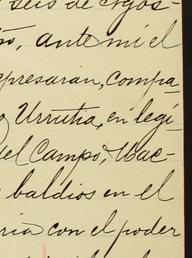 seis de Agos-
to, ante mi el
expresaran, compa
Urrutia, en legí
del Campo, Mac-
baldios en el
ria con el poder